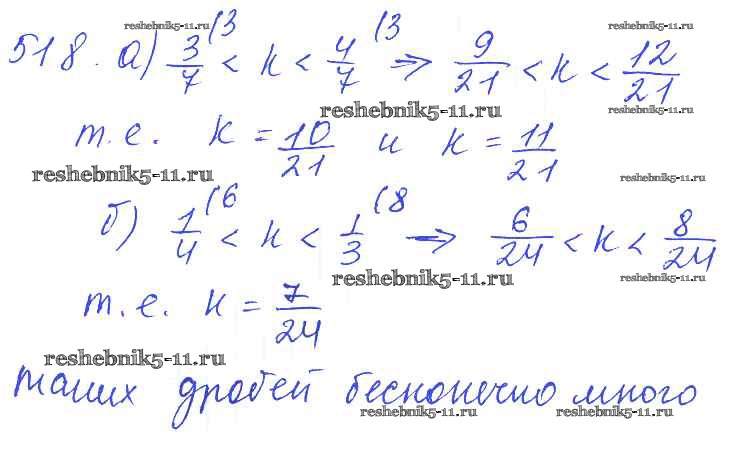 reshebnik5-11.ru reshebnik5-11.ru
518. а) 3/7 (3 < к < 4/7 (3 ⇒ 9/21 < к < 12/21
reshebnik5-11.ru reshebnik5-11.ru
т.е. к = 10/21 и к = 11/21
reshebnik5-11.ru reshebnik5-11.ru
б) 1/4 (6 < к < 1/3 (8 → 6/24 < к < 8/24
reshebnik5-11.ru reshebnik5-11.ru
т.е. к = 7/24
reshebnik5-11.ru
таких дробей бесконечно много
reshebnik5-11.ru reshebnik5-11.ru